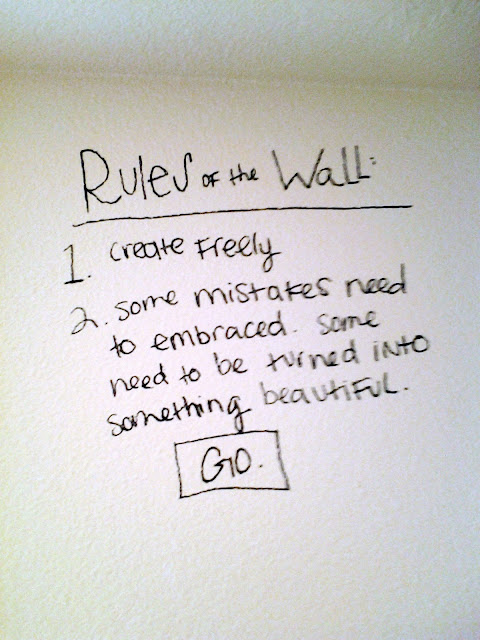 Rules of the Wall:
1. Create Freely
2. Some mistakes need
to embraced. Some
need to be turned into
something beautiful.
GO.